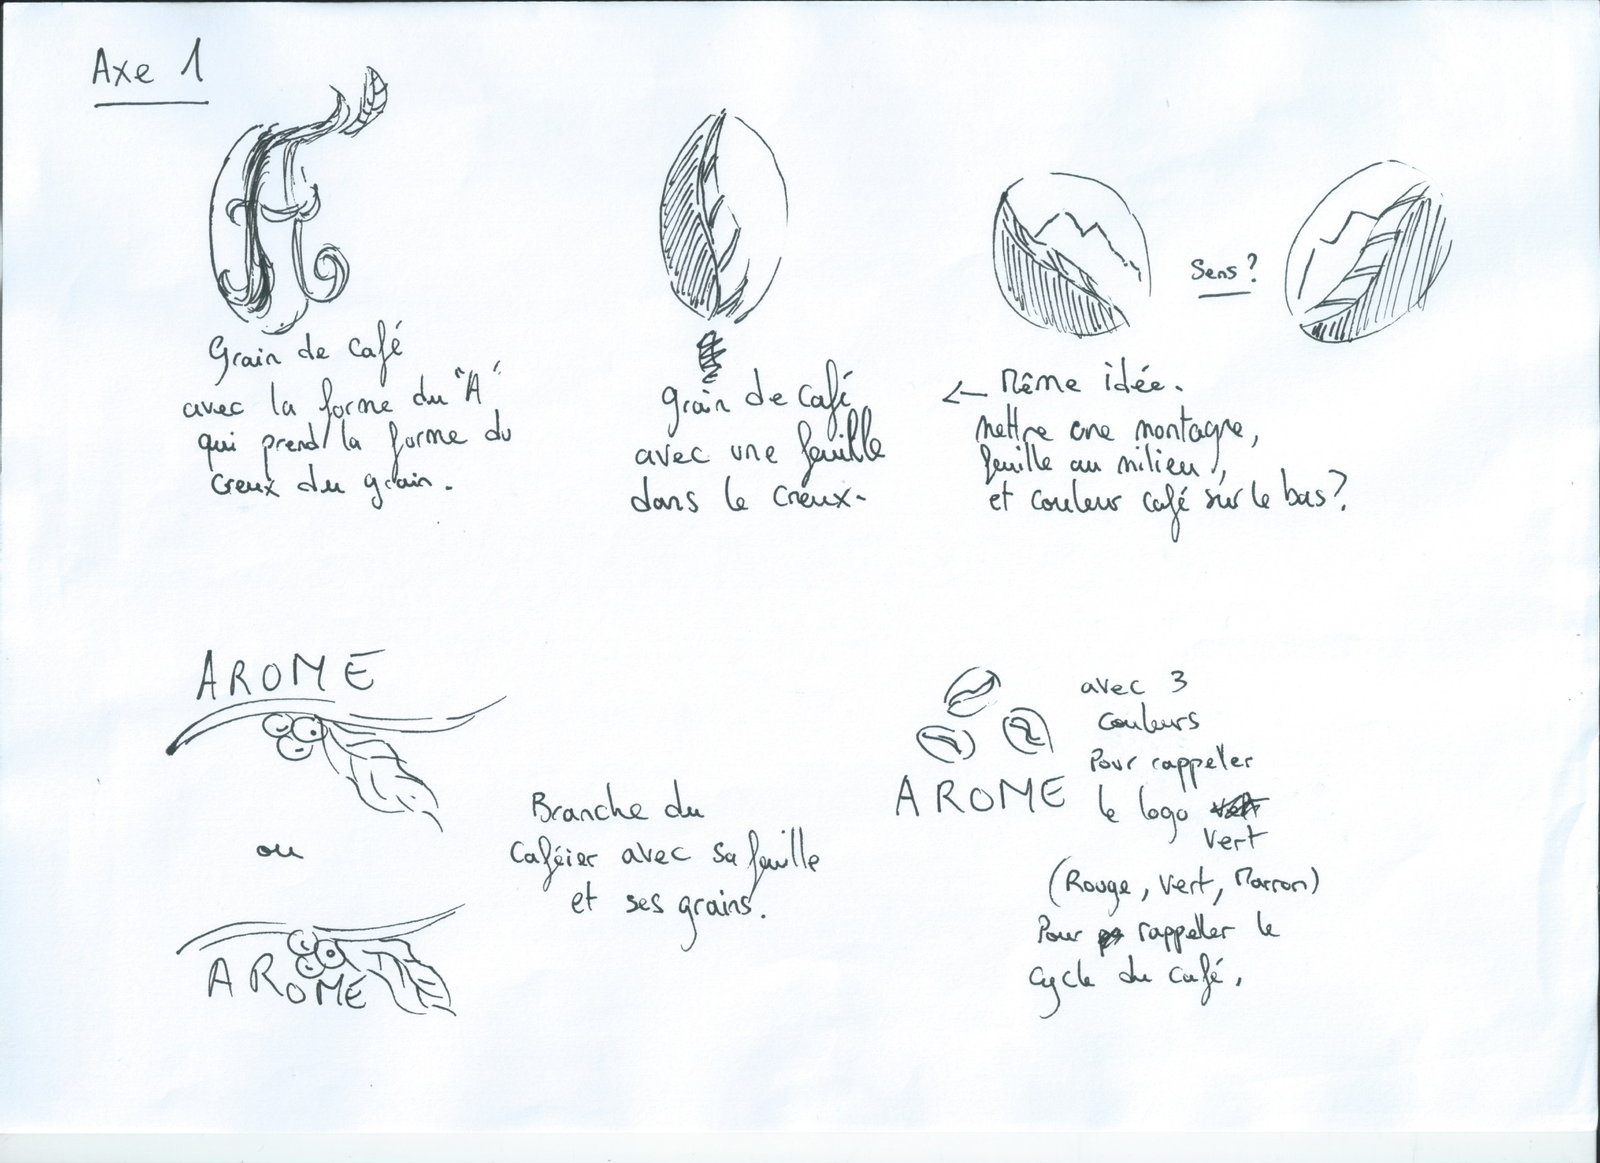 Axe 1
Grain de café
avec la forme du "A"
qui prend la forme du
creux du grain.
grain de café
avec une feuille
dans le creux.
Sens ?
← Même idée.
Mettre une montagne,
feuille au milieu,
et couleur café sur le bas ?
AROME
ou
AROME
Branche du
Caféier avec sa feuille
et ses grains.
AROME
avec 3
couleurs
Pour rappeler
le logo
vert
(Rouge, Vert, Marron)
Pour rappeler le
cycle du café.